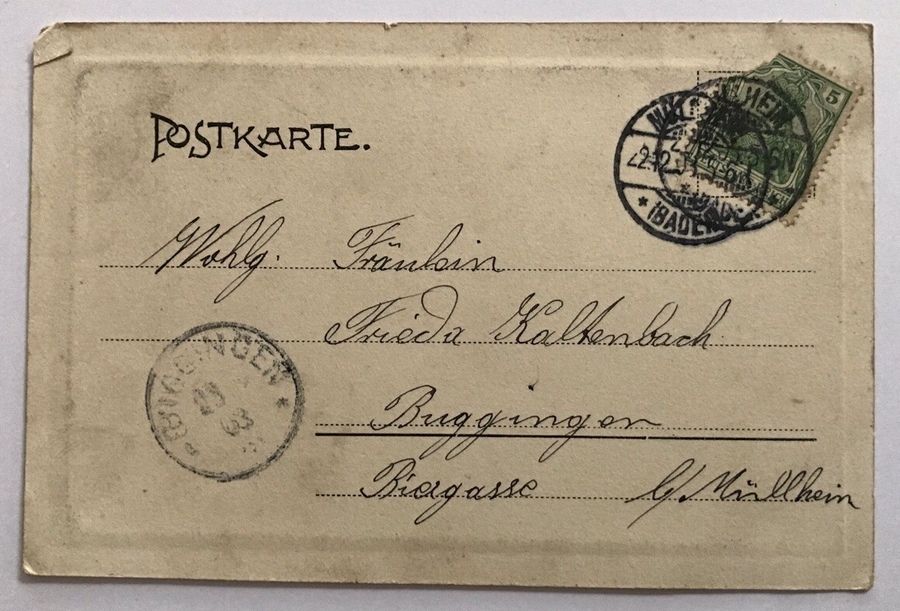 POSTKARTE.
5
MÜLLHEIM
22.12.03
* (BADEN) *
Wohlg. Fräulein
Frieda Kaltenbach
Buggingen
Biergasse b/ Müllheim
BUGGINGEN
23